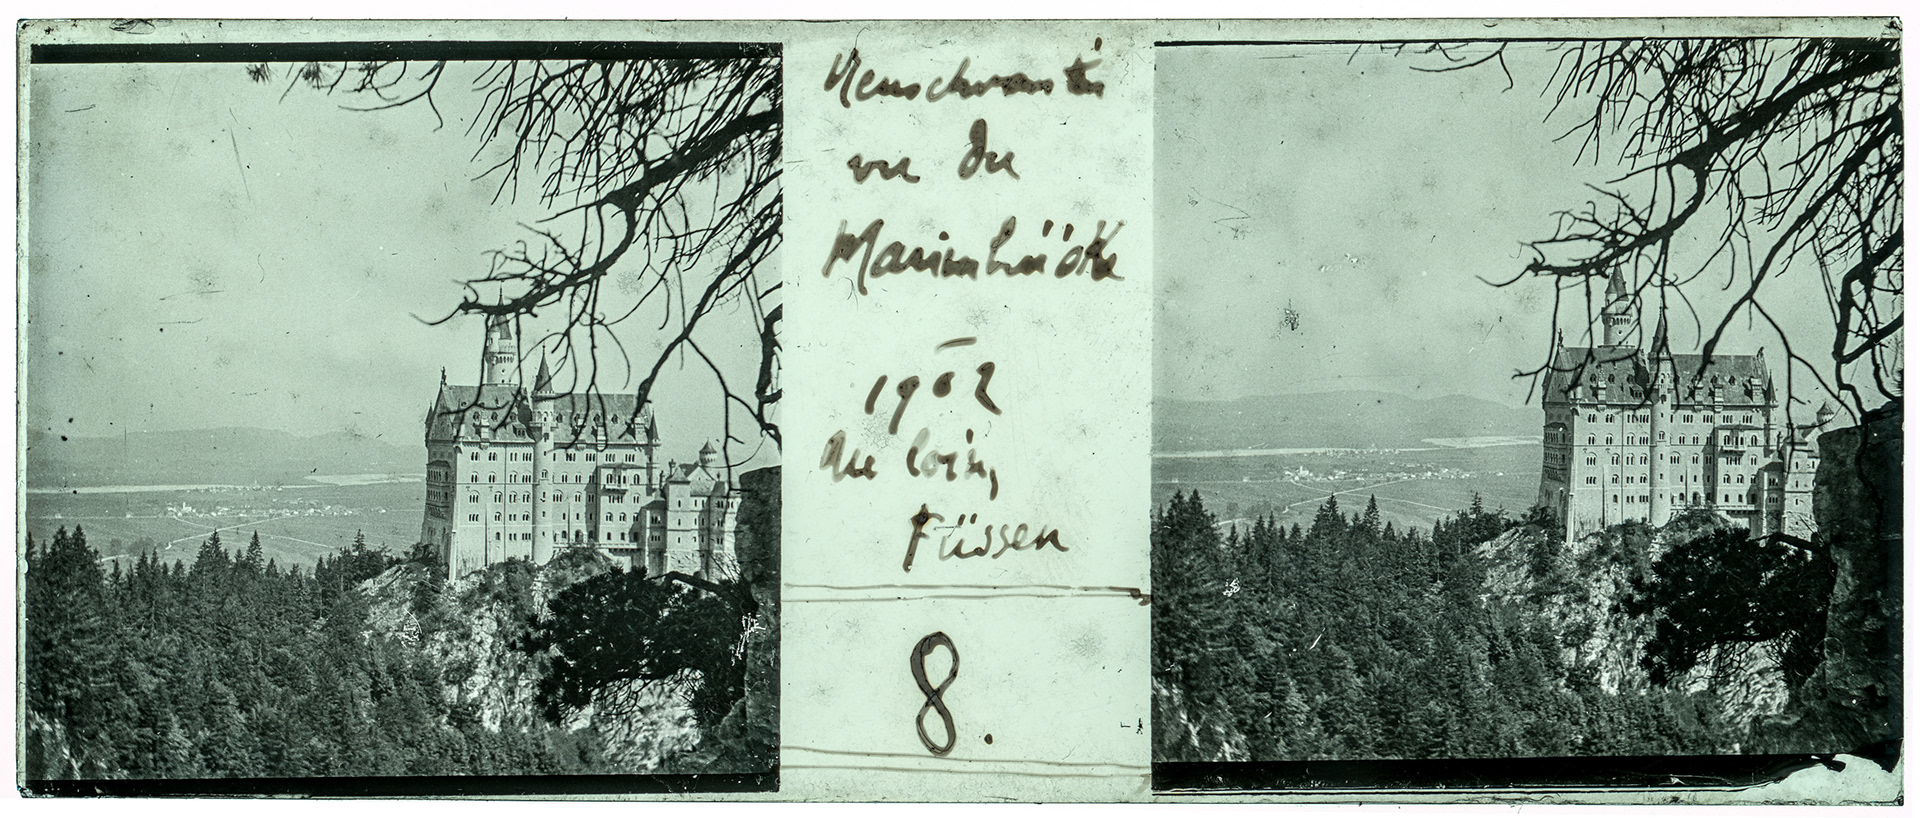 Neuschwanstein
vu du
Marienbrücke
–
1902
Au loin,
Füssen
8.